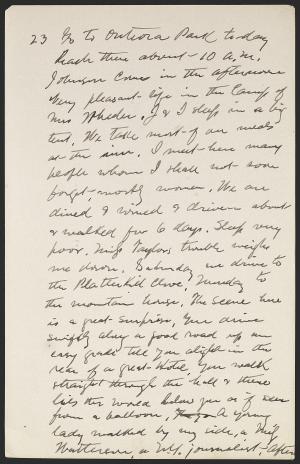 23 Go to Onteora Park to-day
Reach there about - 10 A.M.
Johnson comes in the afternoon
Very pleasant - life in the Camp of
Mrs Wheeler. J & I sleep in a big
tent. We take most - of our meals
at the inn. I meet - here many
people whom I shall not soon
forget, mostly women. We are
dined & wined & driven about
& walked for 6 days. Sleep very
poor. Miss Taylors trouble weighs
me down. Saturday we drive to
the Platterkill Clove, Sunday to
the mountain house. The scene here
is a great - surprise. You drive
swiftly along a good road up an
easy grade till you alight - in the
rear of a great - hotel. You walk
straight through the hall & there
lies the world below you as if seen
from a balloon. A young
lady walked by my side, a Miss
a journalist. After